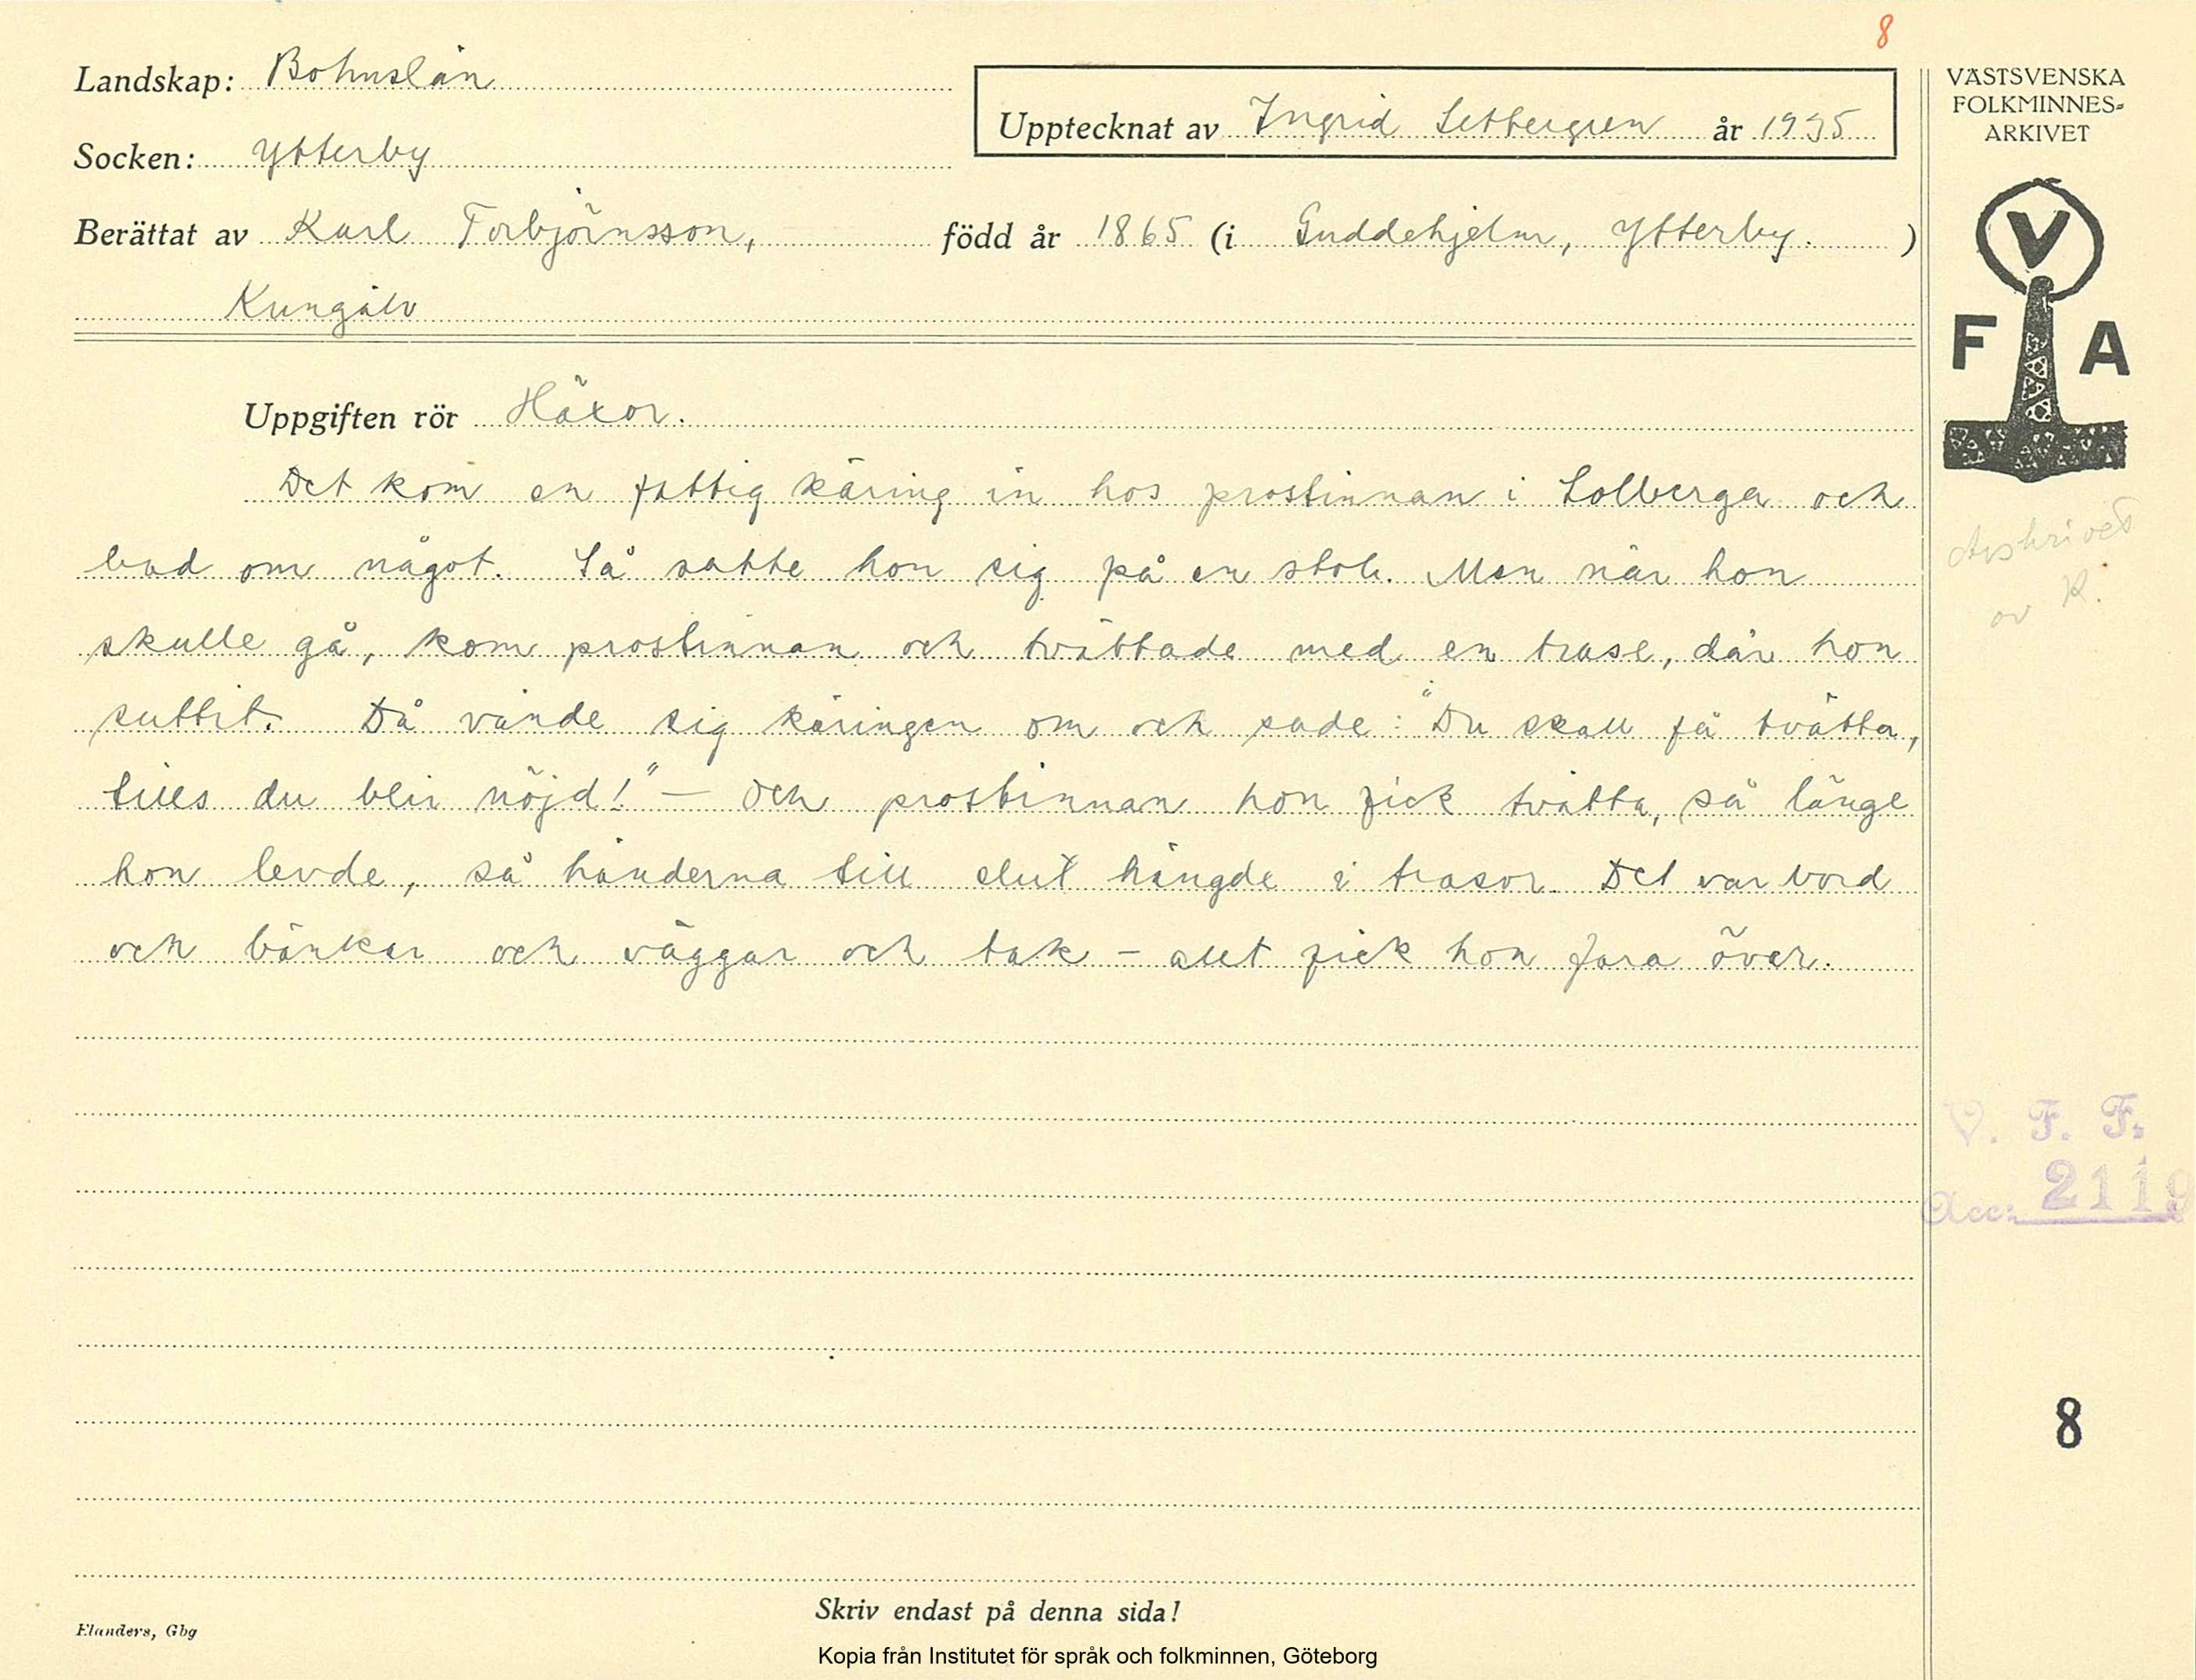 8
Landskap: Bohuslän
Upptecknat av Ingrid Settergren år 1935
Socken: Ytterby
Berättat av Karl Torbjörnsson, född år 1865 (i Guddehjelm, Ytterby. )
Kungälv
VÄSTSVENSKA
FOLKMINNES-
ARKIVET
V
F A
Uppgiften rör Häxor.
Det kom en fattig käring in hos prostinnan i Solberga och
bad om något. Så satte hon sig på en stol. Men när hon
skulle gå, kom prostinnan och tvättade med en trase, där hon
suttit. Då vände sig käringen om och sade: "Du skall få tvätta,
tills du blir nöjd!" — Och prostinnan hon fick tvätta, så länge
hon levde, så händerna till slut hängde i trasor. Det var bord
och bänkar och väggar och tak – allt fick hon fara över.
Avskrivet
av R.
V. F. F.
Acc. 2119
8
Skriv endast på denna sida!
Elanders, Gbg
Kopia från Institutet för språk och folkminnen, Göteborg